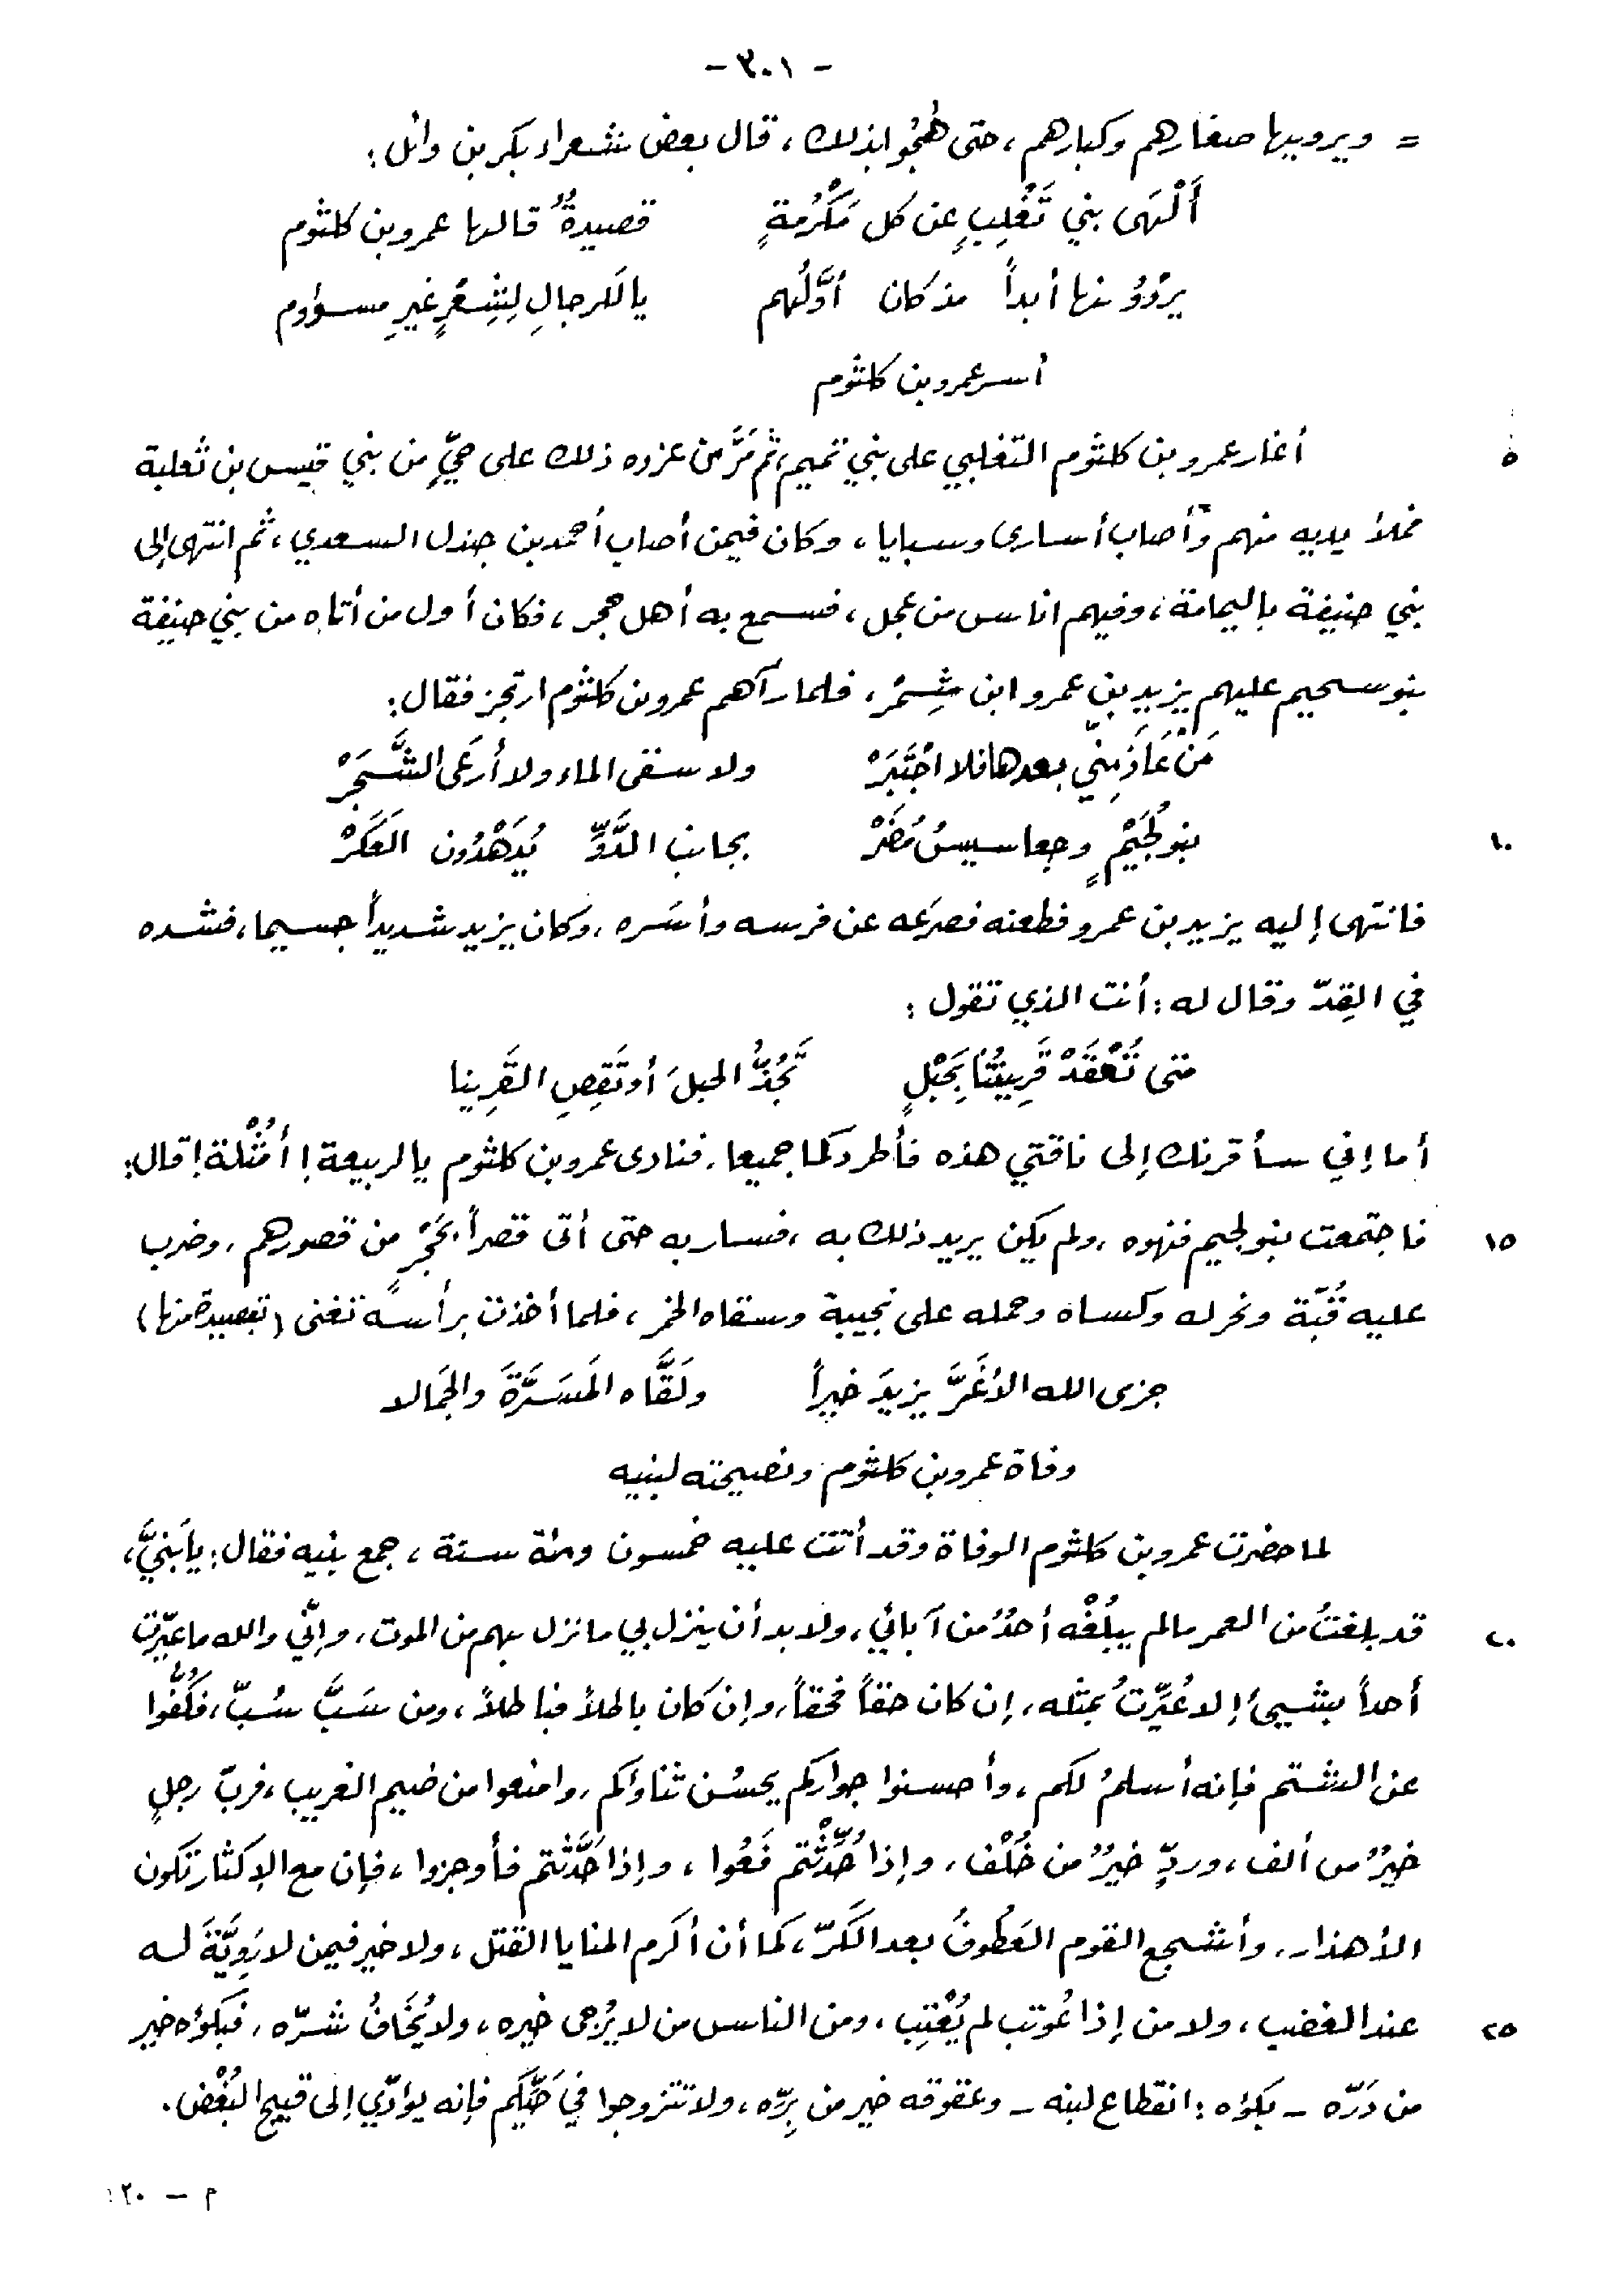 - ٣٠١ -
= ويرويها صغارهم وكبارهم، حتى هُجُوا بذلك، قال بعض شعراء بكر بن وائل:
أَلْهَى بني تَغْلِبٍ عن كل مَكْرُمةٍ قصيدةٌ قالها عمرو بن كلثوم
يرْوُونها أبداً مذ كان أوَّلُهم يا لَلرجالِ لِشِعْرٍ غيرِ مسؤوم
أسر عمرو بن كلثوم
٥ أغار عمرو بن كلثوم التغلبي على بني تميم، ثم مَرَّ من غزوه ذلك على حيٍّ من بني قيس بن ثعلبة
فملأ يديه منهم وأصاب أسارى وسبايا، وكان فيمن أصاب أحمد بن جندل السعدي، ثم انتهى إلى
بني حنيفة باليمامة، وفيهم اناس من عجل، فسمع به أهل حجر، فكان أول من أتاه من بني حنيفة
بنو سحيم عليهم يزيد بن عمرو ابن شِمْر، فلما رآهم عمرو بن كلثوم ارتجز فقال:
مَنْ عَاذَ مِنّي بعدها فلا اجْتَبَرْ ولا سقى الماء ولا أرعَى الشَّجَرْ
١٠ بنو لُجَيْمٍ وجعاسيسُ مُضَرْ بجانب الدَّوِّ يُدَهْدُون العَكَرْ
فانتهى إليه يزيد بن عمرو فطعنه فصرَعه عن فرسه وأسَره، وكان يزيد شديداً جسيما، فشده
في القِدّ وقال له: أنت الذي تقول:
متى تُعْقَدْ قَرِينتُنا بِحَبْلٍ نَجُذُّ الحبلَ أو تَقِصِ القَرِينا
أما إني سأقرنك إلى ناقتي هذه فأطردكما جميعا، فنادى عمرو بن كلثوم يا لربيعة! أمُثْلة! قال:
١٥ فاجتمعت بنو لجيم فنهوه، ولم يكن يريد ذلك به، فسار به حتى أتى قصراً بحَجْرٍ من قصورهم، وضرب
عليه قُبّة ونحر له وكساه وحمله على نجيبة وسقاه الخمر، فلما أخذت برأسه تغنى (بقصيدة منها)
جزى الله الأغَرَّ يزيدَ خيراً ولَقَّاه المَسَرَّةَ والجَمالا
وفاة عمرو بن كلثوم ونصيحته لبنيه
لما حضرت عمرو بن كلثوم الوفاة وقد أتت عليه خمسون ومئة سنة، جمع بنيه فقال: يا بَنيَّ،
٢٠ قد بلغتُ من العمر ما لم يبلُغْه أحدٌ من آبائي، ولا بد أن ينزل بي ما نزل بهم من الموت، وإنّي والله ما عيّرت
أحداً بشيئ إلا عُيِّرتُ بمثله، إن كان حقاً فحقاً، وإن كان باطلاً فباطلاً، ومن سَبَّ سُبّ، فكُفُّوا
عن الشتم فإنه أسلمُ لكم، وأحسنوا جواركم يحسُن ثناؤكم، وامنعوا من ضيم الغريب، فربّ رجلٍ
خيرٌ من ألف، وردٍّ خيرٌ من خُلْف، وإذا حُدِّثْتم فَعُوا، وإذا حَدَّثتم فأوجزوا، فإن مع الإكثار تكون
الأهذار، وأشجع القوم العَطُوفُ بعد الكَرّ، كما أن أكرم المنايا القتل، ولا خير فيمن لا رَوِيَّةَ له
٢٥ عند الغضب، ولا من إذا عُوتب لم يُعْتِب، ومن الناس من لا يُرْجى خيره، ولا يُخافُ شرّه، فبكؤه خير
من دَرّه - بكؤه: انقطاع لبنه - وعقوقه خير من بِرّه، ولا تتزوجوا في حَيِّكم فإنه يؤدّي إلى قبيح البُغْض.
م - ٢٠